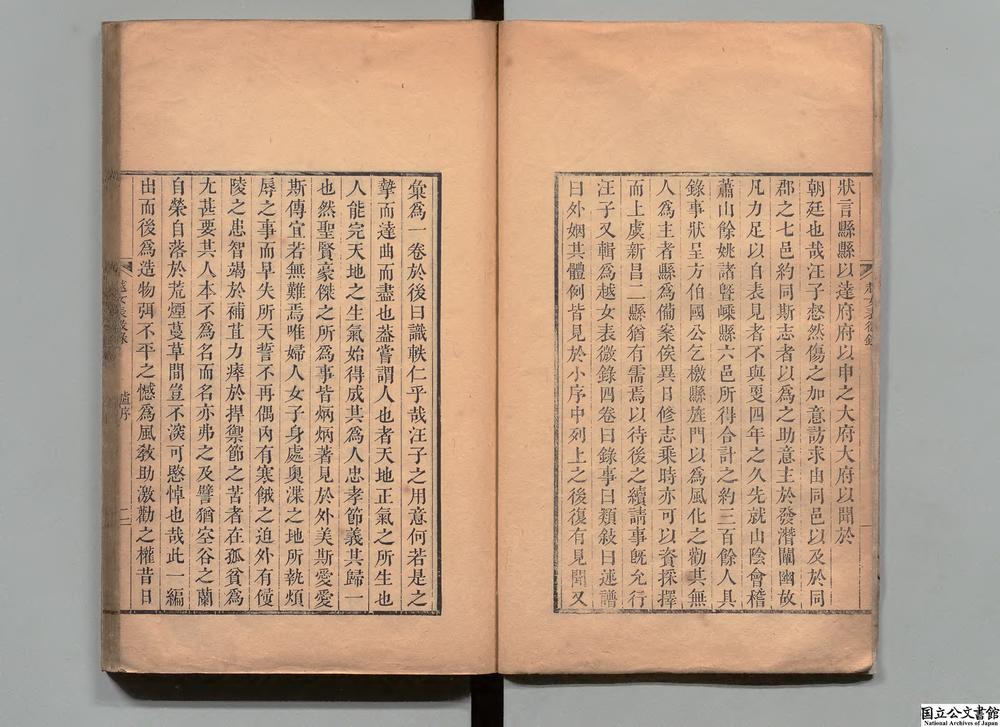 狀言縣縣以達府府以申之大府大府以聞於
朝廷也哉汪子惄然傷之加意訪求由同邑以及於同
郡之七邑約同斯志者以爲之助意主於發潛闡幽故
凡力足以自表見者不與焉四年之久先就山陰會稽
蕭山餘姚諸曁嵊縣六邑所得合計之約三百餘人具
錄事狀呈方伯國公乞檄縣旌門以爲風化之勸其無
人爲主者縣爲備案俟異日修志乘時亦可以資採擇
而上虞新昌二縣猶有需焉以待後之續請事旣允行
汪子又輯爲越女表微錄四卷曰錄事曰類敍曰述譜
曰外姻其體例皆見於小序中列上之後復有見聞又
彙爲一卷於後曰識軼仁乎哉汪子之用意何若是之
摯而達曲而盡也葢嘗謂人也者天地正氣之所生也
人能完天地之生氣始得成其爲人忠孝節義其歸一
也然聖賢豪傑之所爲事皆炳炳著見於外美斯愛愛
斯傳宜若無難焉唯婦人女子身處奧渫之地所執煩
辱之事而早失所天誓不再偶內有寒餓之迫外有
陵之患智竭於補苴力瘁於捍禦節之苦者在孤貧爲
尢甚要其人本不爲名而名亦弗之及譬猶空谷之蘭
自榮自落於荒煙蔓草間豈不淡可愍悼也哉此一編
出而後爲造物弭不平之憾爲風敎助激勸之權昔日
越女表微錄
序
二
国立公文書館
National Archives of Japan